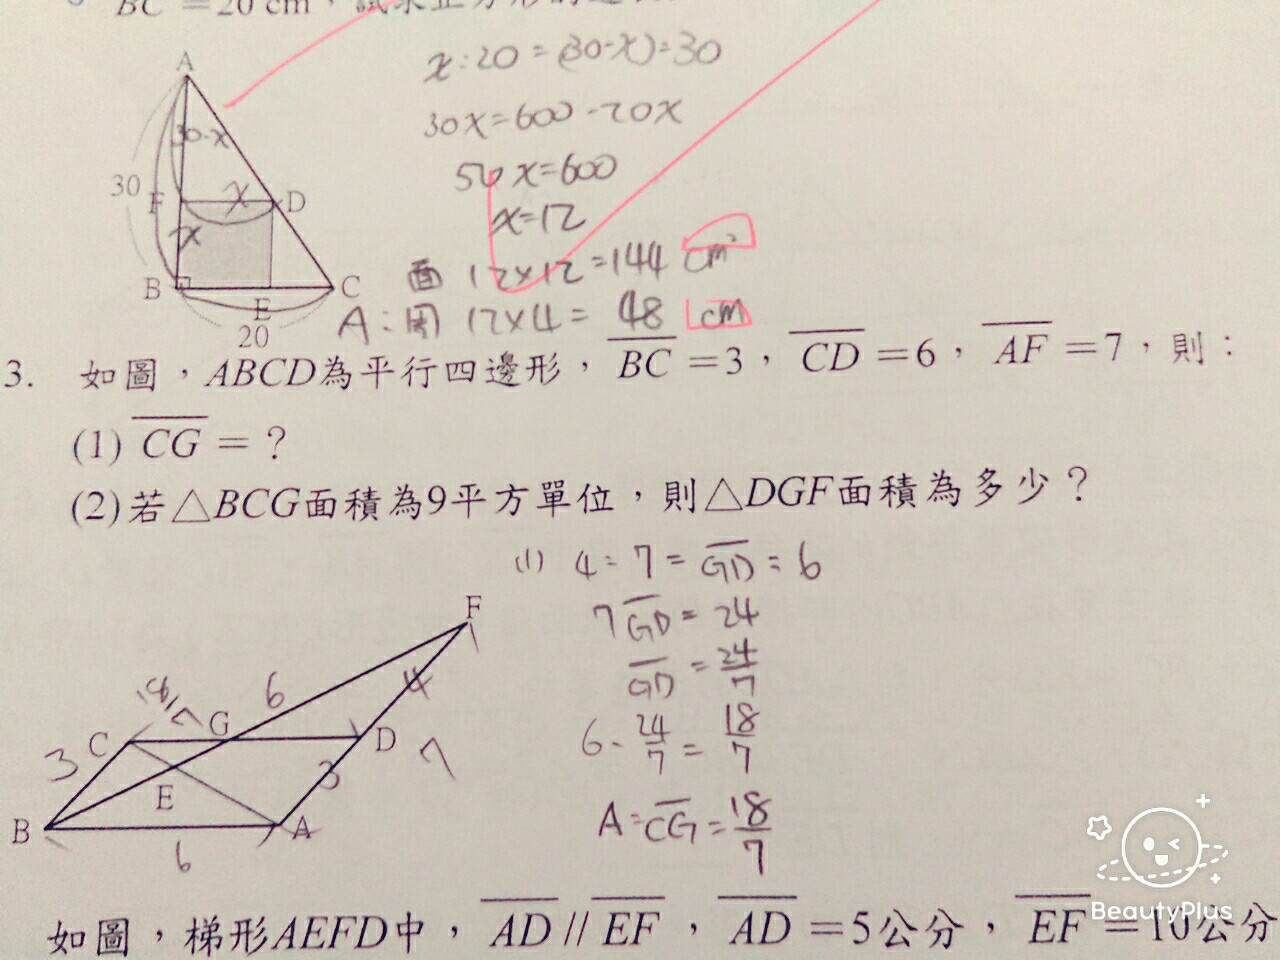 BC = 20 cm，試求正方形的邊長
x:20 = (30-x):30
30x=600-20x
50x=600
x=12
面 12×12=144 cm²
A: 周 12×4= 48 cm
A
30-x
30
F
x
D
x
B
E
C
20
3. 如圖，ABCD為平行四邊形，BC=3，CD=6，AF=7，則：
(1) CG = ?
(2) 若△BCG面積為9平方單位，則△DGF面積為多少？
(1) 4:7=GD:6
7GD=24
GD=24/7
6-24/7=18/7
A:CG=18/7
F
18/7
6
4
C
G
D
3
7
E
3
B
A
6
如圖，梯形AEFD中，AD//EF，AD=5公分，EF=10公分
BeautyPlus